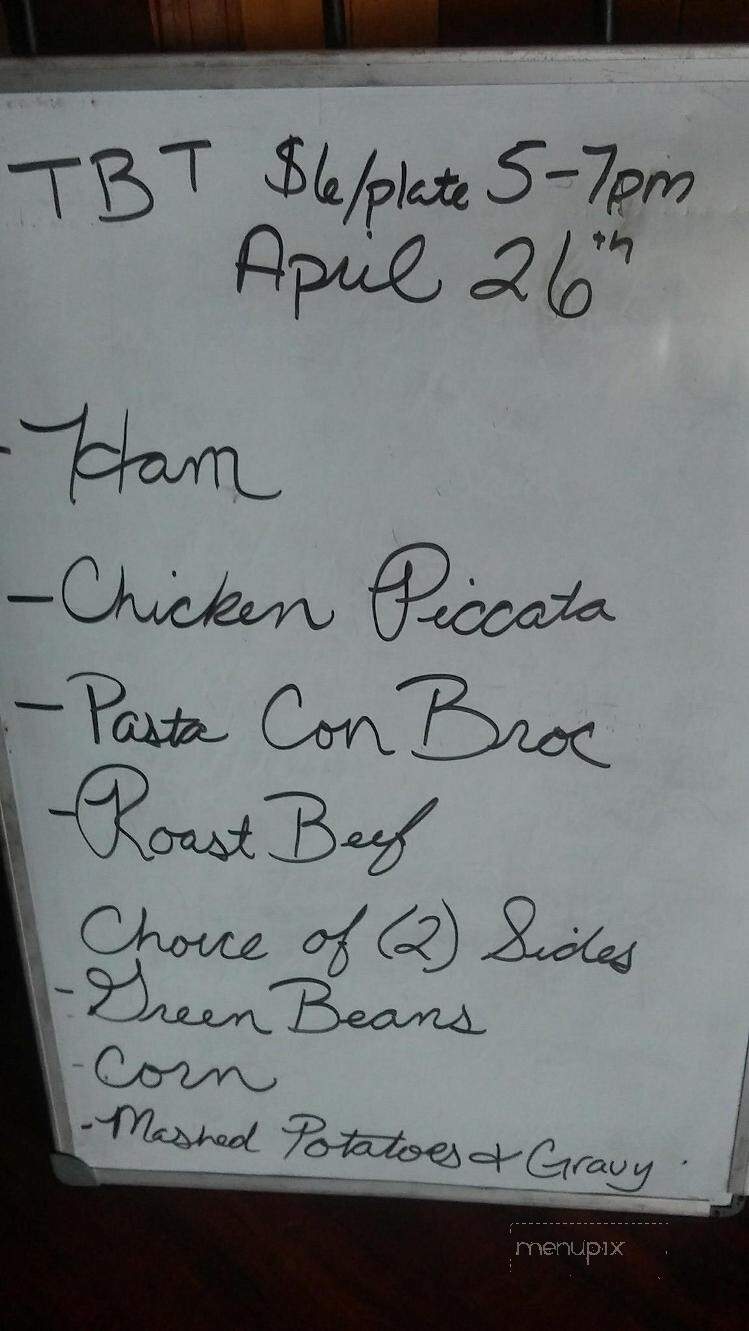 TBT $6/plate 5-7pm
April 26th
- Ham
- Chicken Piccata
- Pasta Con Broc
- Roast Beef
Choice of (2) Sides
- Green Beans
- Corn
- Mashed Potatoes & Gravy
menupix